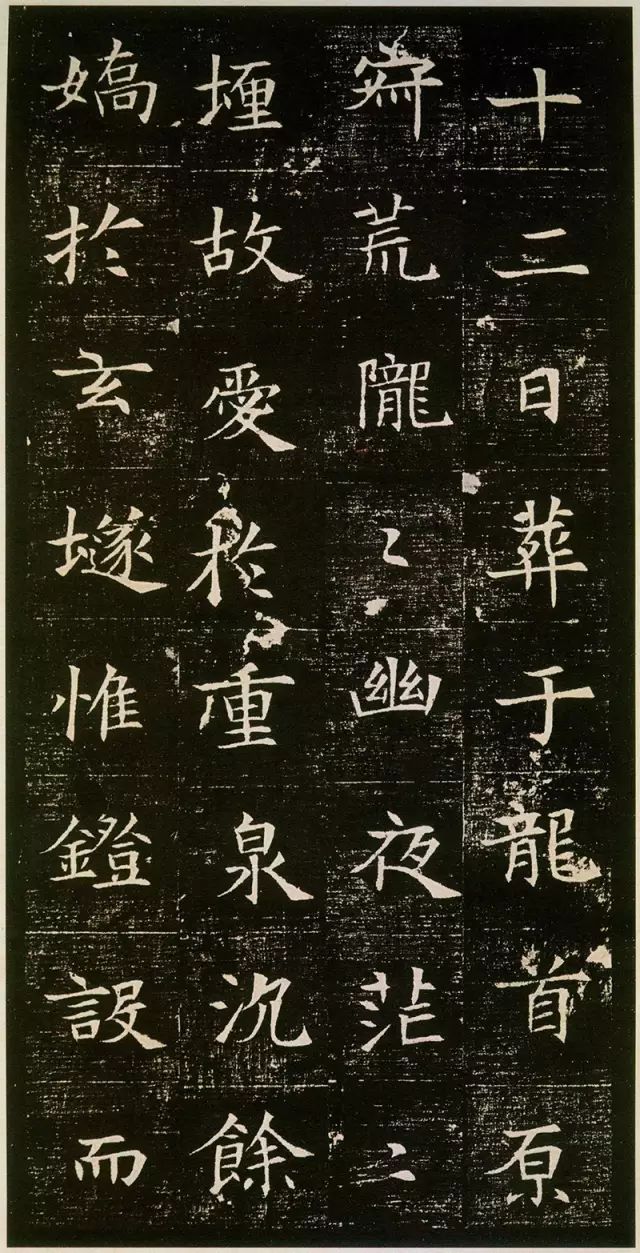 十二日葬于龍首原
寂荒隴〻幽夜茫〻
堙故愛於重泉沉餘
嬌於玄𡑞惟鐙設而